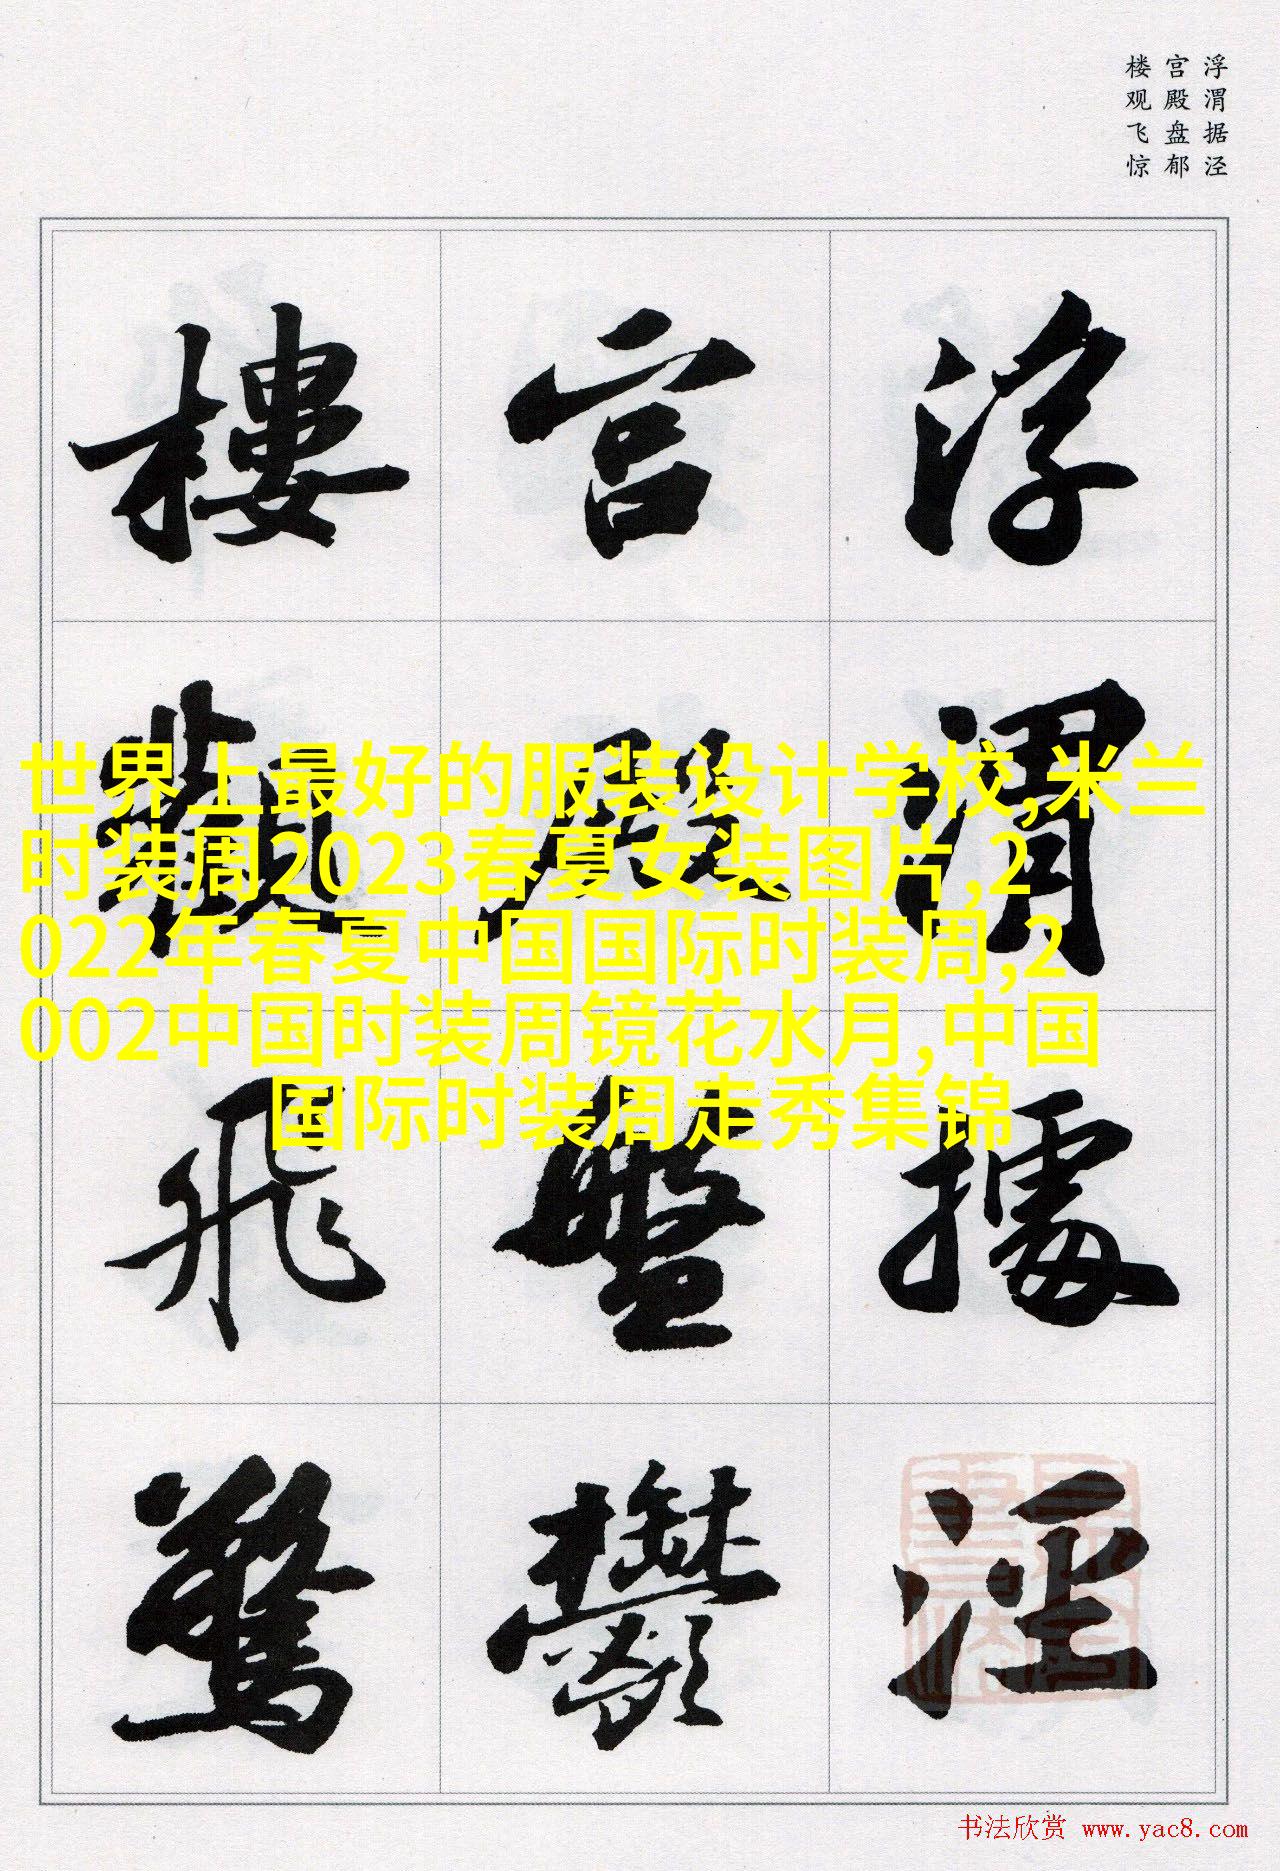 浮渭据泾
宫殿盘郁
楼观飞惊
浮渭據涇
宮殿盤鬱
樓觀飛驚
世界上最好的服装设计学校,米兰
时装周2023春夏女装图片,2
022年春夏中国国际时装周,2
002中国时装周镜花水月,中国
国际时装周走秀集锦
书法欣赏 www.yac8.com